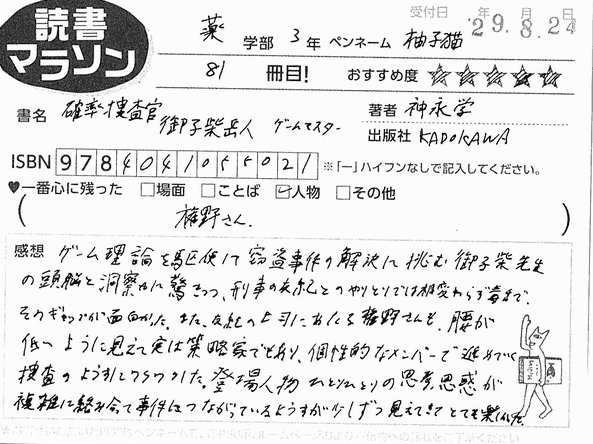 読書
マラソン
受付日 年 月 日
'29.8.24
薬 学部 3年 ペンネーム 柚子猫
81 冊目! おすすめ度 ☆☆☆☆☆
書名 確率捜査官 御子柴岳人 ゲームマスター
著者 神永学
出版社 KADOKAWA
ISBN 9784041055021 ※「ー」ハイフンなしで記入してください。
♥一番心に残った □場面 □ことば ☑人物 □その他
( 権野さん。 )
感想 ゲーム理論を駆使して窃盗事件の解決に挑む御子柴先生
の頭脳と洞察力に驚きつつ、刑事の友紀とのやりとりでは相変わらず毒舌で、
そのギャップが面白かった。また、友紀の上司にあたる権野さんも、腰が
低いように見えて実は策略家でもあり、個性的なメンバーで進めていく
捜査のようすにワクワクした。登場人物ひとりひとりの思惑が
複雑に絡み合って事件につながっているようすが少しずつ見えてきてとても楽しかった。